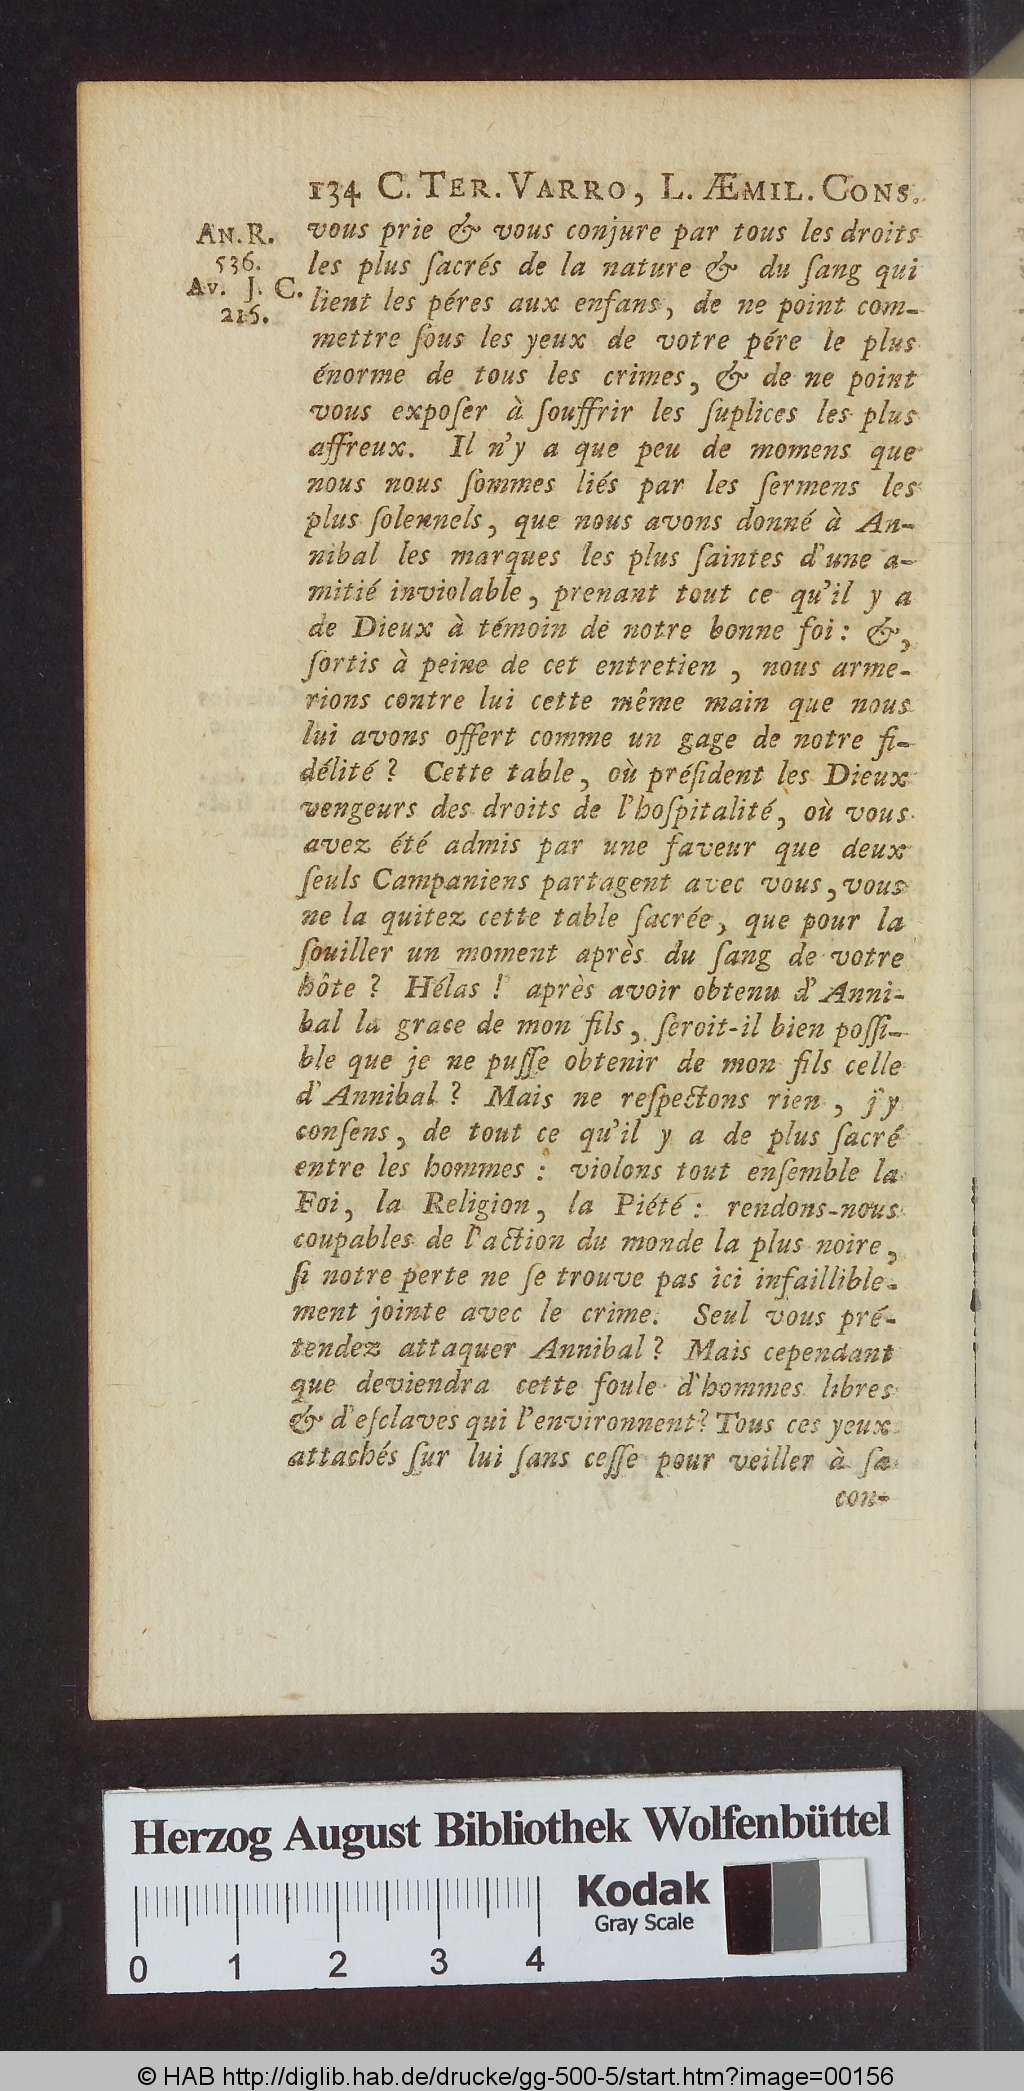 134 C. TER. VARRO, L. ÆMIL. CONS.
AN. R.
536.
AV. J. C.
216.
vous prie & vous conjure par tous les droits
les plus ſacrés de la nature & du ſang qui
lient les péres aux enfans, de ne point com-
mettre ſous les yeux de votre pére le plus
énorme de tous les crimes, & de ne point
vous expoſer à ſouffrir les ſuplices les plus
affreux. Il n'y a que peu de momens que
nous nous ſommes liés par les ſermens les
plus ſolennels, que nous avons donné à An-
nibal les marques les plus ſaintes d'une a-
mitié inviolable, prenant tout ce qu'il y a
de Dieux à témoin de notre bonne foi: &,
ſortis à peine de cet entretien, nous arme-
rions contre lui cette même main que nous
lui avons offert comme un gage de notre fi-
délité? Cette table, où préſident les Dieux
vengeurs des droits de l'hoſpitalité, où vous
avez été admis par une faveur que deux
ſeuls Campaniens partagent avec vous, vous
ne la quitez cette table ſacrée, que pour la
ſouiller un moment après du ſang de votre
hôte? Hélas! après avoir obtenu d'Anni-
bal la grace de mon fils, ſeroit-il bien poſſi-
ble que je ne puſſe obtenir de mon fils celle
d'Annibal? Mais ne reſpectons rien, j'y
conſens, de tout ce qu'il y a de plus ſacré
entre les hommes: violons tout enſemble la
Foi, la Religion, la Piété: rendons-nous
coupables de l'action du monde la plus noire,
ſi notre perte ne ſe trouve pas ici infaillible-
ment jointe avec le crime. Seul vous pré-
tendez attaquer Annibal? Mais cependant
que deviendra cette foule d'hommes libres
& d'eſclaves qui l'environnent? Tous ces yeux
attachés ſur lui ſans ceſſe pour veiller à ſa
con-
Herzog August Bibliothek Wolfenbüttel
Kodak
Gray Scale
0 1 2 3 4
© HAB http://diglib.hab.de/drucke/gg-500-5/start.htm?image=00156